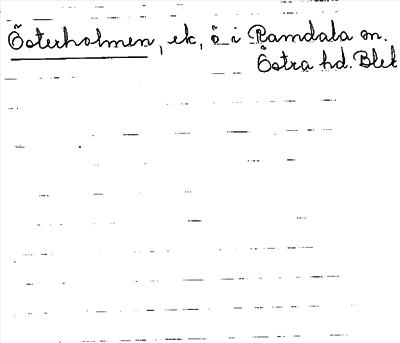 Österholmen, ek, ö i Ramdala sn.
Östra hd. Blek